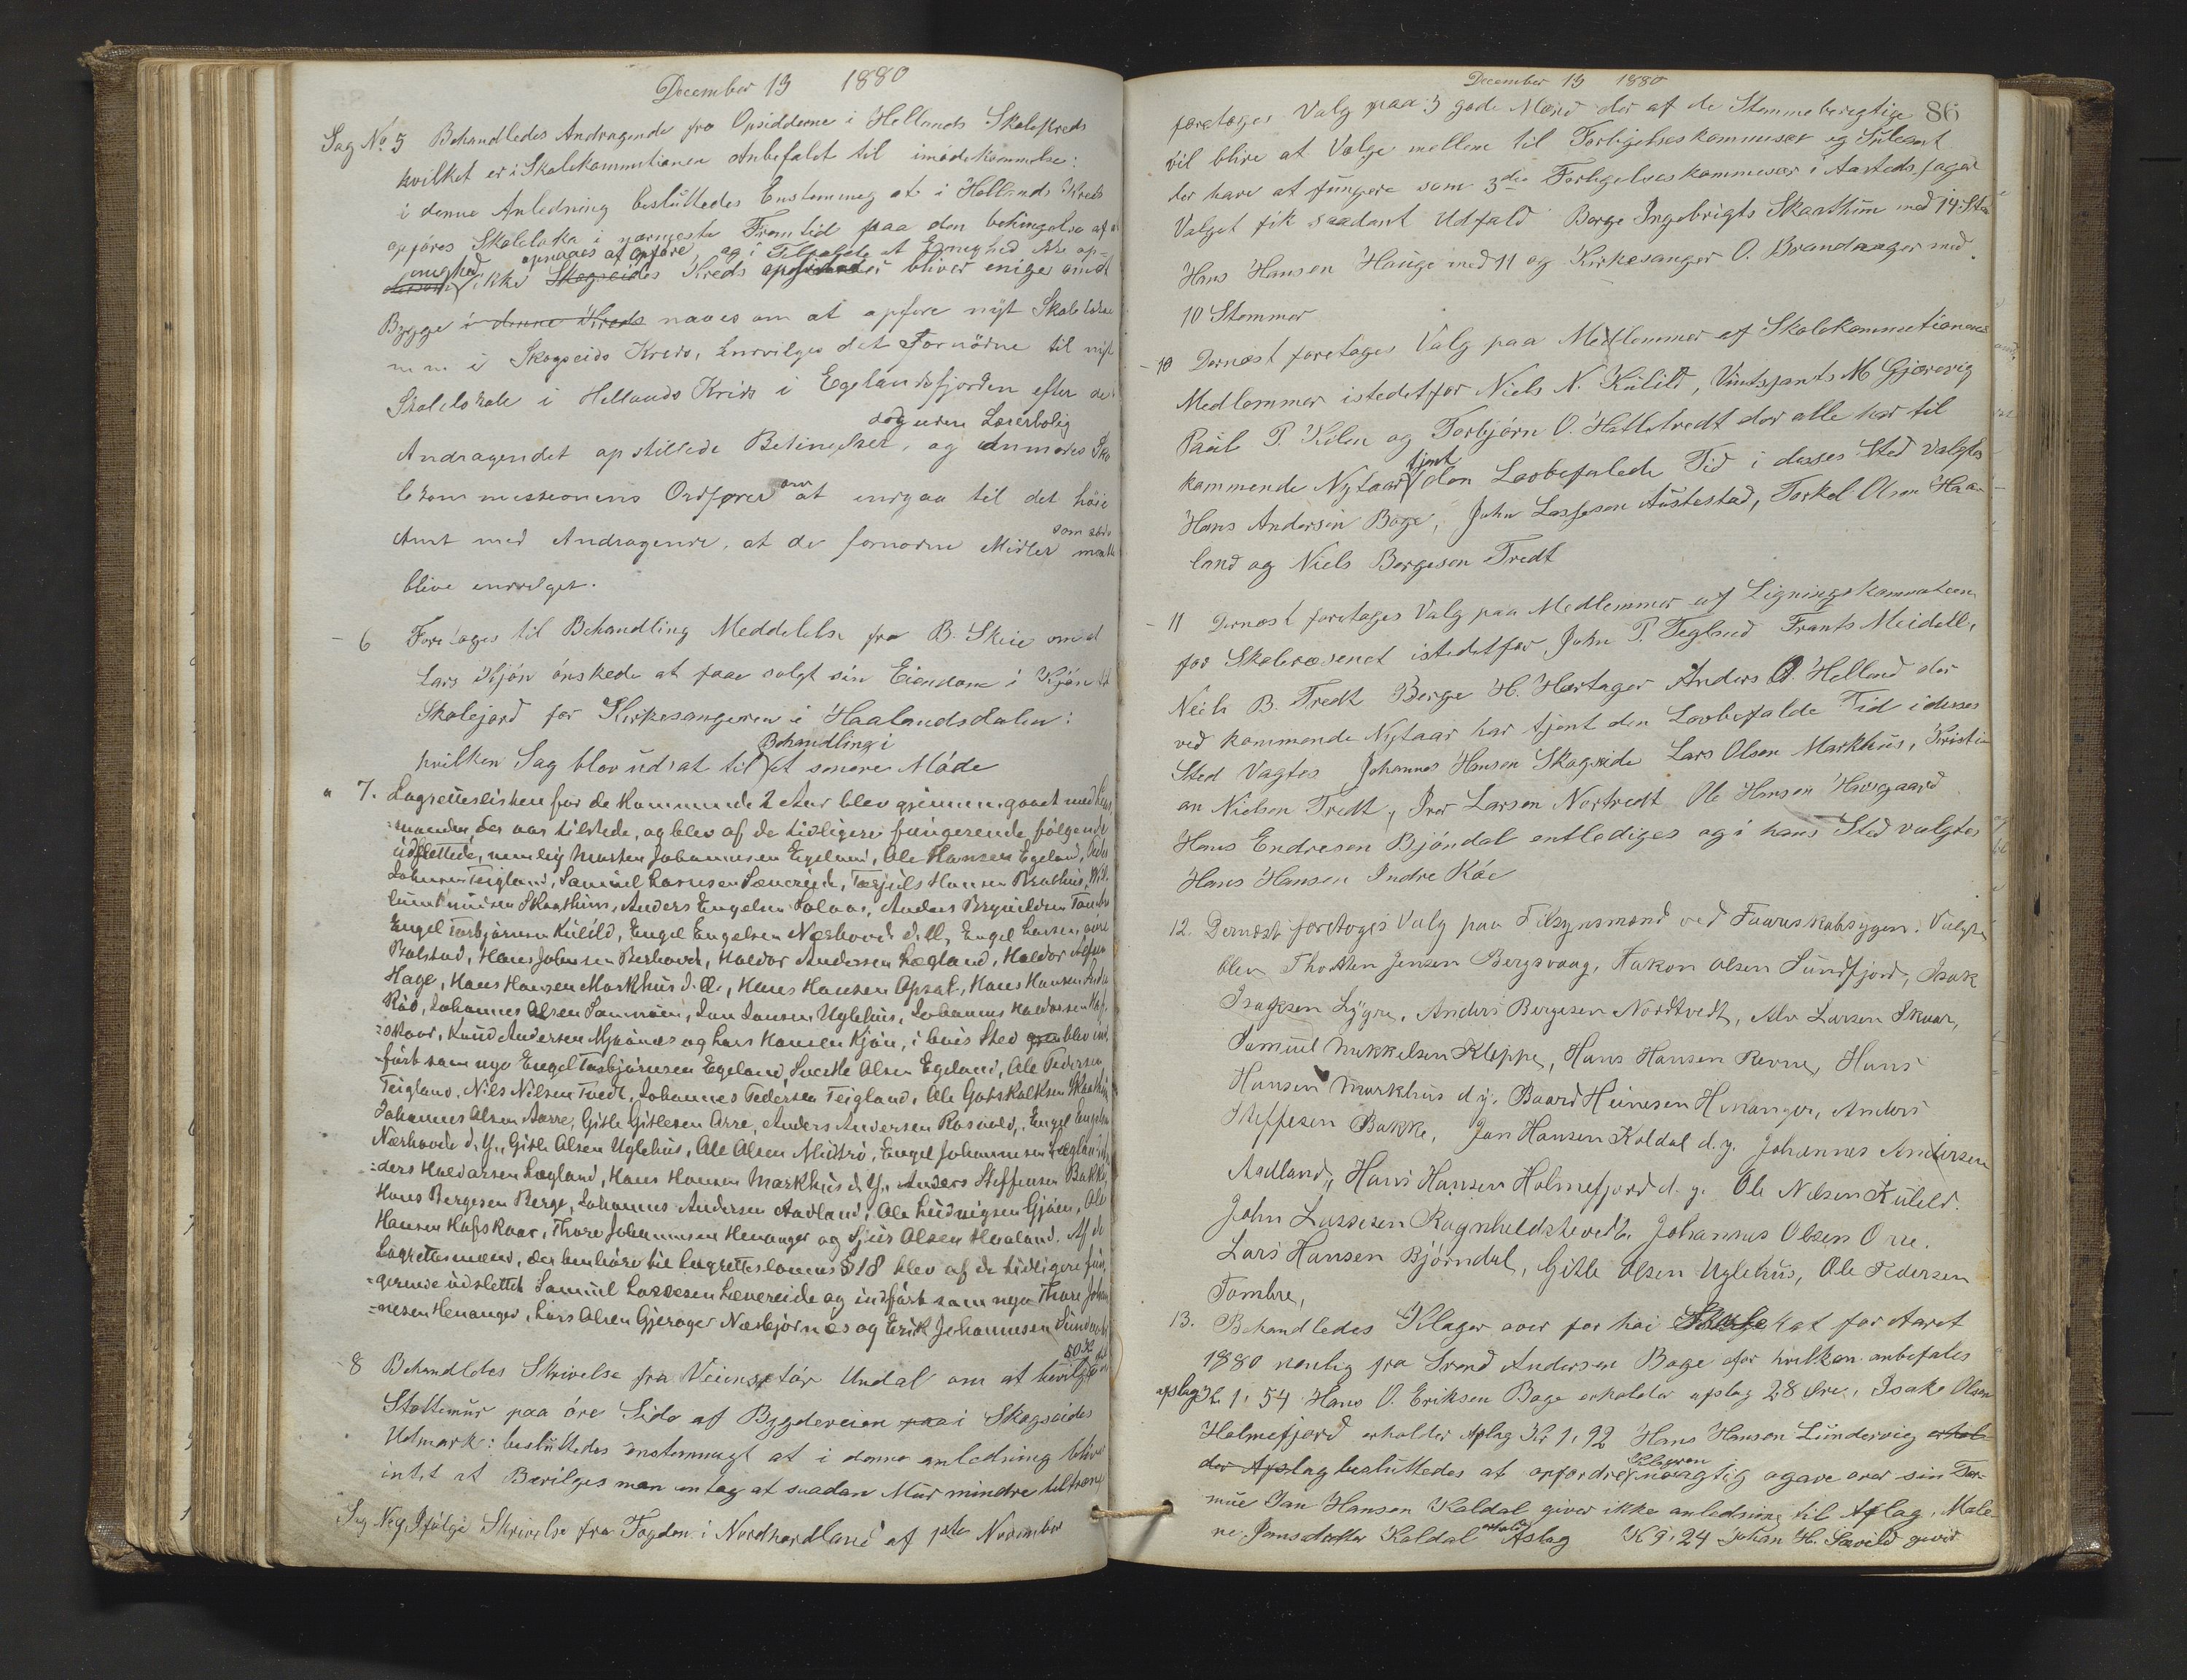 December 13 1880
Sag No 5 Behandledes Andragende fra Opsidderne i Hellands Skolekreds
hvilket er i Skolekommitionen Anbefalet til imødekommelse:
i denne Anledning besluttedes Enstemmig at i Hellands Kreds
opføres Skoleloka i nærmeste Fremtid paa den betingelse af at
enighed opnaaes at opføre og i Tilfælde at Enighed
dersom ikke Skogseides Kreds opsiddere bliver enige om at
Bygge i denne Kreds naaes om at opføre nyt Skolelokale
m m i Skogseids Kreds, indvilges det Fornødne til nyt
Skolelokale i Hellands Kreds i Egelandsfjorden efter de i
dog uden Lærerbolig
Andragendet opstillede Betingelser, og anmodes Sko
lekommissionens Ordfører om at indgaa til det høie
Amt med Andragende, at de fornødne Midler maatte
blive indvilget.
- 6 Foretages til Behandling Meddelelse fra B. Skeie om at
Lars Kjøn ønskede at faae solgt sin Eiendom i Kjøn til
Skolejord for Kirkesangeren i Haalandsdalen:
Behandling i
hvilken Sag blev udsat til et senere Møde
" 7. Lagretteslisten for de kommende 2 Aar blev gjennemgaaet med Lens
=manden, der var tilstede, og blev af de tidligere fungerende følgende
udslettede, nemlig Morten Johannesen Egeland, Ole Hansen Egeland,
Johnsen Teigland, Samuel Larsesen Sævereide, Torjuls Hansen Brathus,
Skaathun, Anders Engelsen Solaas, Anders Brynildsen Tombre
Engel Torbjørnsen Kulild, Engel Engelsen Nærhovde d. Æ, Engel Larsen øvre
Bolstad, Hans Johnsen Berhovde, Haldor Andersen Lægland, Haldor
Hage, Hans Hansen Markhus d. Æ., Hans Hansen Opsal, Hans Hansen Indre
Kåe, Johannes Olsen Samnøen, Jon Jonsen Uglehus, Johannes Haldorsen Hafs
=skaar, Knud Andersen Mjaanæs og Lars Hansen Kjøn, i hvis Sted blev ind
=ført som nye Engel Torbjørnsen Egeland, Sjovthe Olsen Egeland, Ole Pedersen
Teigland, Nils Nilsen Tvedt, Johannes Pedersen Teigland, Ole Gotskalksen Skaathun
Johannes Olsen Aarre, Gitle Gitlesen Orre, Anders Andersen Rosseld, Engel Engelsen
Nærhovde d. Y., Gitle Olsen Uglehus, Ole Olsen Midtrø, Engel Johannesen Lægland, An
=ders Haldorsen Lægland, Hans Hansen Markhus d. Y., Anders Steffensen Bakke,
Hans Bergesen Berge, Johannes Andersen Aadland, Ole Ludvigsen Gjøen, Ole
Hansen Hafskaar, Thore Johannesen Henanger og Sjur Olsen Haaland. Af de
Lagrettesmænd, der henhøre til Lagretteslovens § 18 blev af de tidligere fun
=gerende udslettet Samuel Lassesen Sævereide og indført som nye Thore Johan
=nesen Henanger, Lars Olsen Gjerager Næsbjørnæs og Erik Johannesen Sundvor
50 K
- 8 Behandledes Skrivelse fra Veiinspektør Undal om at bevilge
Støttemur paa øvre Side af Bygdeveien paa i Skogseides
Udmark: besluttedes enstemmigt at i denne anledning blive
intet at Bevilges man antog at saadan Mur mindre tiltrængt
Sag No 9 Ifølge Skrivelse fra Fogden i Nordhordland af 1ste November
December 13 1880
86
foretages Valg paa 3 gode Mænd der af de Stemmeberegtige
vil blive at Vælge mellem til Forligelseskommisær og Suleant
der have at fungere som 3die Forligelseskommisær i Aasteds sager
Valget fik saadant Udfald Børge Ingebrigts Skaathun med 14 Stem
Hans Hansen Hauge med 11 og Kirkesanger O. Brandanger med
10 Stemmer
- 10 Dernæst foretages Valg paa Medlemmer af Skolekommitionens
Medlemmer istedetfor Niels N. Kulild, Vintsjants M Gjærevig
Paul P. Kilen og Torbjørn O. Hatletvedt der alle har til
tjent
kommende Nytaar den Lovbefalede Tid i dësses Sted valgtes
Hans Andersen Bøge, John Lassesen Austestad, Torkel Olsen Haa-
land og Niels Børgeson Tvedt
- 11 Dernæst foretages Valg paa Medlemmer af Ligningskommitionen
for Skolevæsenet istedetfor John P. Tegland Frants Meidell,
Niels B. Tvedt Børge H. Hartager Anders O. Helland der
ved kommende Nytaar har tjent den Lovbefalde Tid i dësses
Sted Vagtes Johannes Hansen Skogseide Lars Olson Markhus, Kristi
an Nielson Tvedt, Iver Larson Nortvedt Ole Hanson Havsgaard
Hans Endreson Bjöndal entlediges og i hans Sted valgtes
Hans Hansen Indre Kåe
12. Dernæst foretoges Valg paa Tilsynsmænd ved Faareskabsygen. Valgte
blev Thorsten Jensen Bergsvaag, Hakon Olsen Sundfjord, Isak
Isaksen Lygre, Anders Bergesen Nordtvedt, Alv Larsen Skaar,
Samuel Mikkelsen Kleppe, Hans Hansen Revne, Hans
Hansen Markhus d. y. Baard Heinesen Henanger, Anders
Steffesen Bakke, Jan Hansen Koldal d. y. Johannes Andersen
Aadland, Hans Hansen Holmefjord d. y. Ole Nilsen Kulild.
John Lassesen Ragnhildstvedt, Johannes Olsen Orre.
Lars Hansen Bjørndal, Gitle Olsen Uglehus, Ole Pedersen
Tombre,
13. Behandledes Klager over for høi Skat for Aaret
1880 nemlig fra Trond Andersen Bøge for hvilken anbefales
afslag K. 1,54 Hans O. Eriksen Bøge erholder afslag 28 Øre, Isake Olsen
Holmefjord erholder Afslag Kr 1,92 Hans Hansen Lundervig erhol-
Klageren
der Afslag besluttedes at opfordre nøiagtig ogave over sin For-
mue Jan Hansen Koldal giver ikke anledning til Afslag, Male-
ne Jonsdatter Koldal erholder Afslag K 9,24 Johan H. Sævild giver